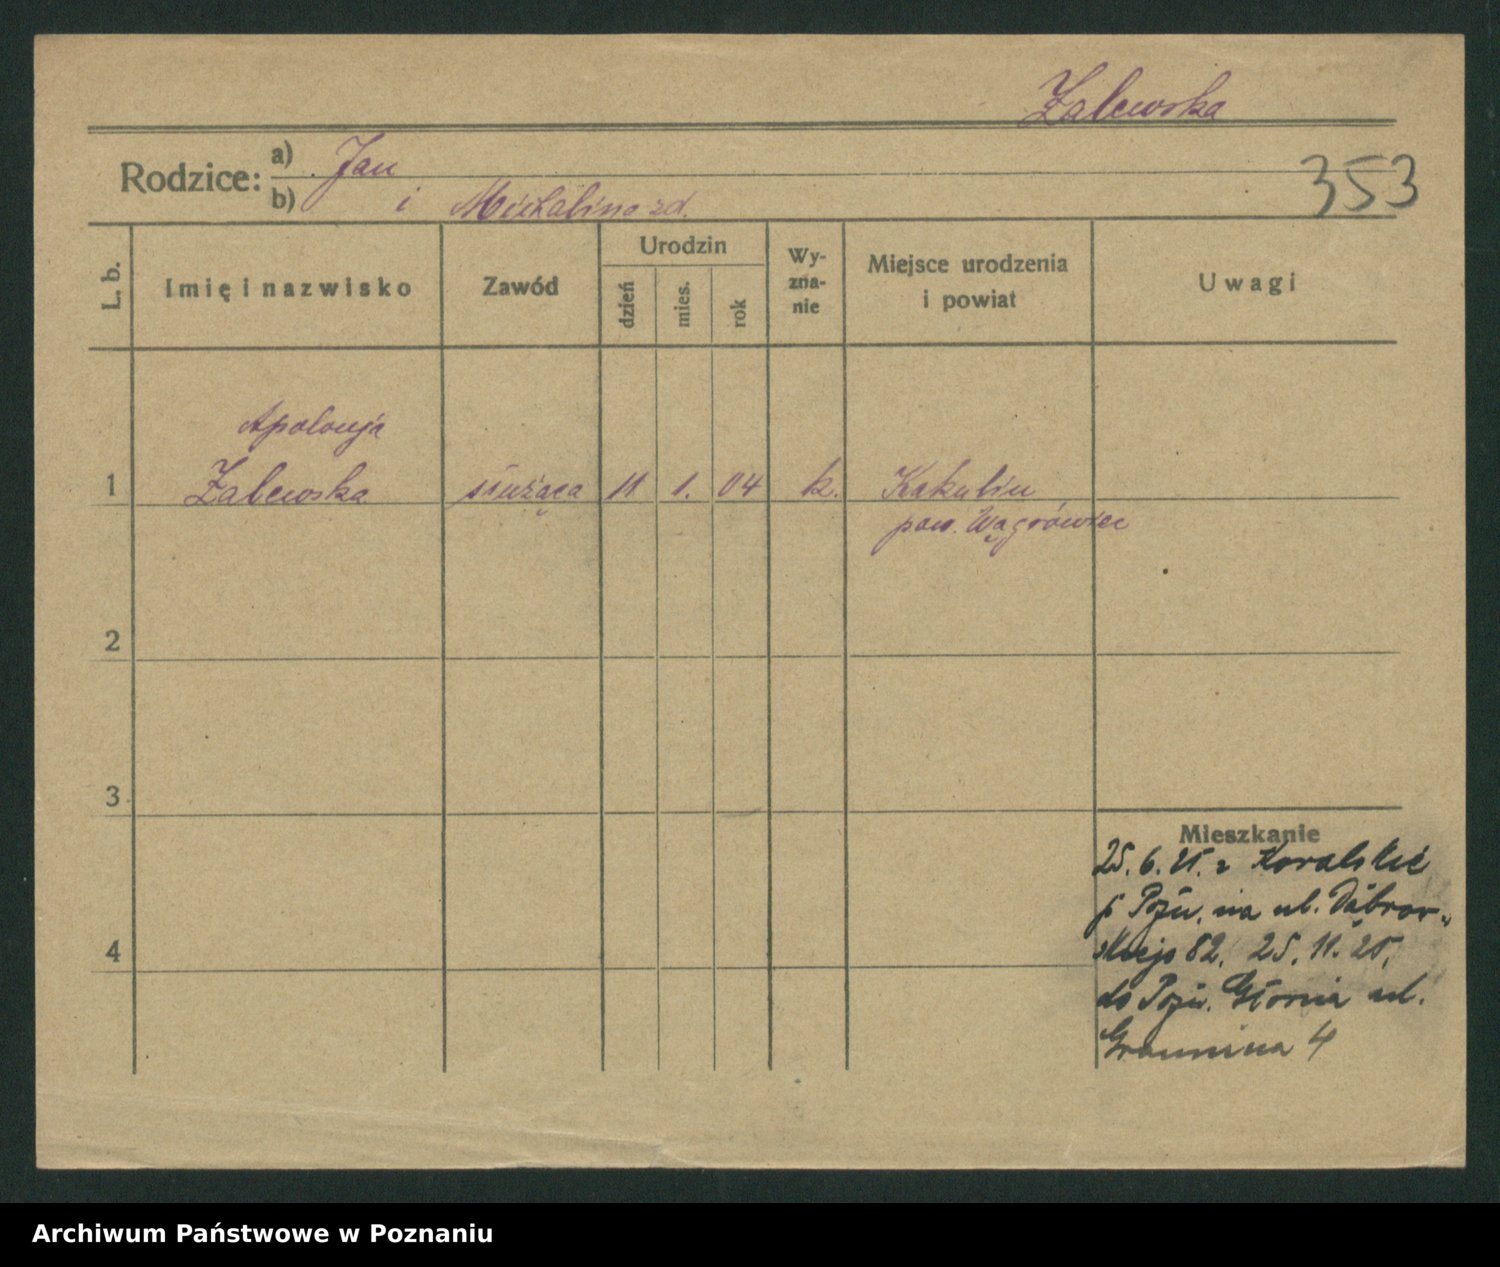 Zalewska
Rodzice: a) Jan
353
b) i Michalina zd.
L. b.
Imię i nazwisko
Zawód
Urodzin
dzień
mies.
rok
Wy-
zna-
nie
Miejsce urodzenia
i powiat
Uwagi
Apolonja
1 Zalewska służąca 11 1. 04 k. Kakulin
pow. Wągrówiec
2
3
Mieszkanie
25. 6. 25. z Kowalskie
p Pozn. na ul. Dąbrow-
skiego 82. 25. 11. 25.
4
do Pozn. Główna ul.
4
Archiwum Państwowe w Poznaniu